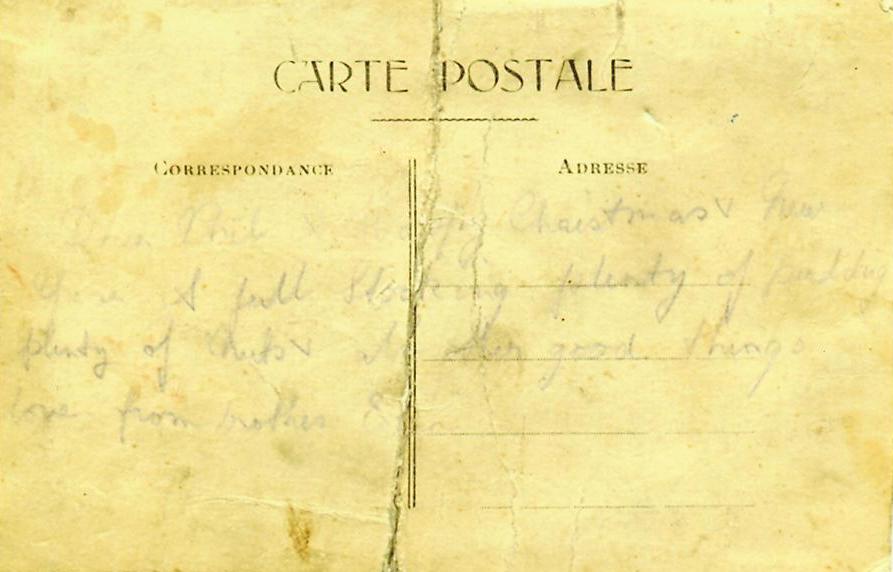 CARTE POSTALE
CORRESPONDANCE
ADRESSE
Dear Phil Happy Christmas & New
Year A full Stocking plenty of pudding
plenty of Nuts & all other good things
love from brother